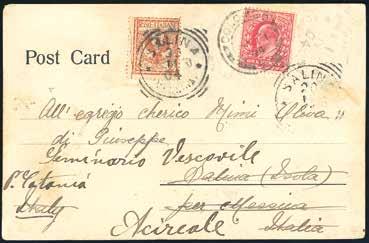 Post Card
SALINA
SALINA
All'egregio cherico Mimi Oliva
di Giuseppe
Seminario Vescovile
P. Catania
Salina (Isola)
Italy
per Messina
Acireale
Italia